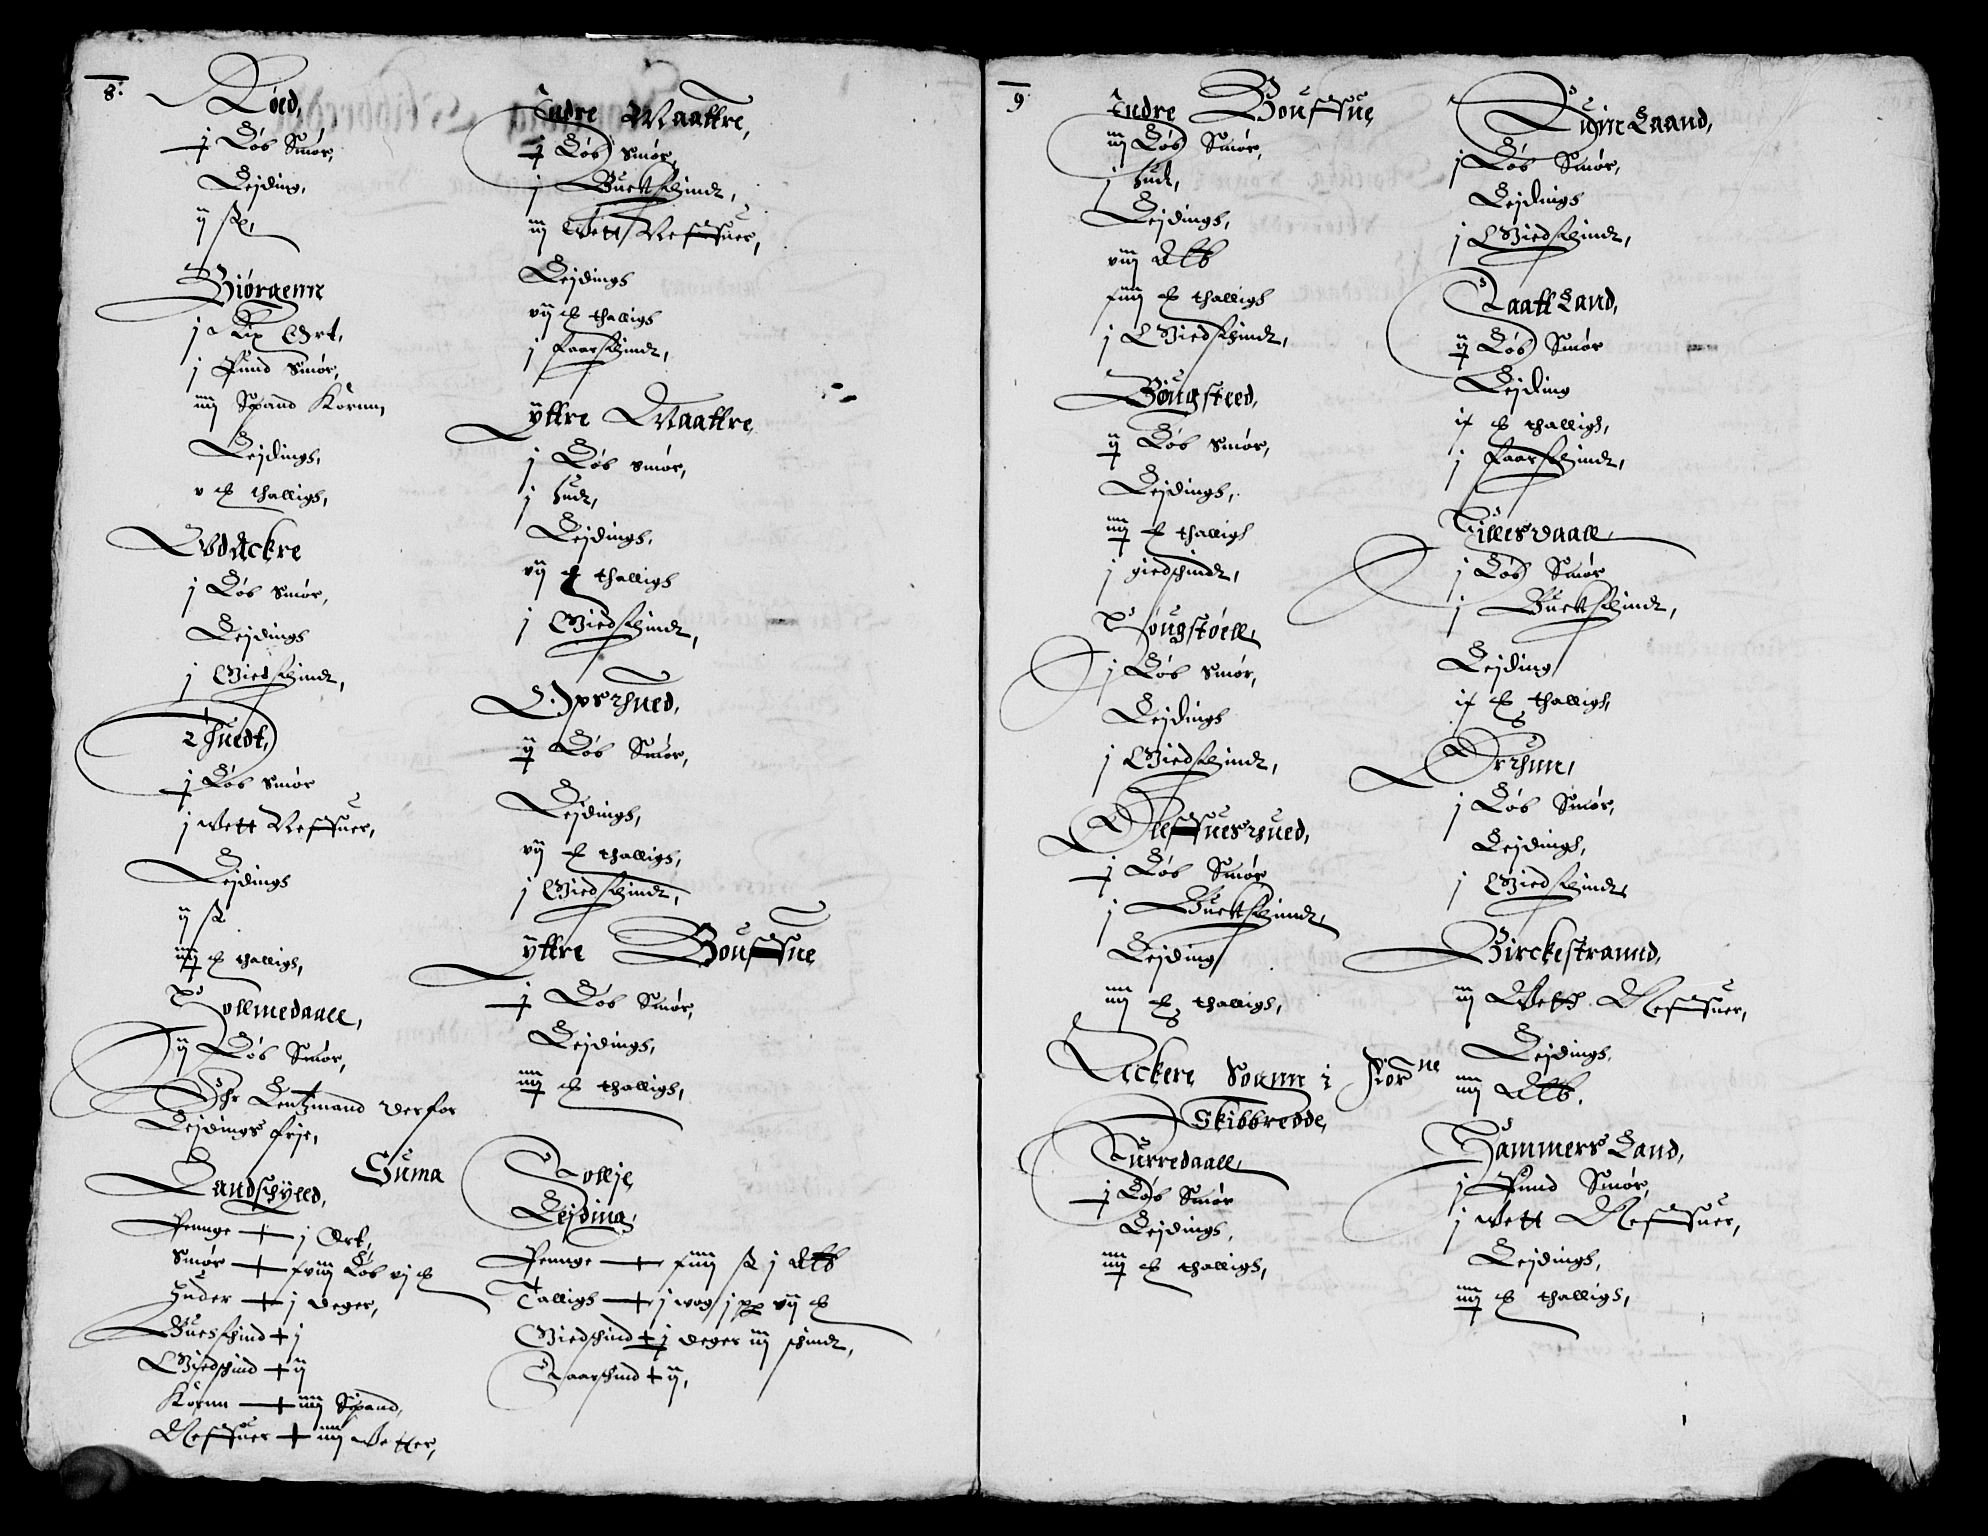 8.
Røed,
j Løb Smør,
Leiding,
ij sk,
Biørgenn
j Rix Ort,
j Pund Smør,
iiij Spand Kornn,
Leidings,
v ℔ thalligs,
Odackre
j Løb Smør,
Leidings
j Giedschindt,
Thuedt,
j Løb Smør
j wett Nefuer,
Leidings
ij sk
iiij ℔ thalligs,
Hollmedaall,
ij Løb Smør,
Ehr Lentzmand derfor
Leidings frje,
Suma
Landschyled,
Pennge j Ort,
Smør xviij Løb vj ℔
Huder j deger,
Buckschind j
Giedschind ij
Kornn iiij Spand,
Nefuer iiij Wetter,
Indre Maattre,
j Løb Smør,
j Buckschindt,
iij Wett Nefuer,
Leidings
vij ℔ thalligs
j Faarschindt,
ÿttre Maattre,
j Løb smør,
j hudt,
Leidings,
vij ℔ thalligs
j Giedschindt,
Opsrhued,
ij Løb Smør,
Leidings,
vij ℔ thalligs,
j Giedschindt,
ÿttre Boufsue
j Løb Smør,
Leidings,
iiij ℔ thalligs,
Follje
Leiding,
Pennge xiiij sk j Alb
Talligs j wog j pp vij ℔
Giedschind j deger iij schindt,
Faarschind ij,
9
Indre Boufsue
iij Løb Smør,
j hudt,
Leidings,
viij Alb
xiij ℔ thalligs
j Giedschindt,
Bougsteed,
ij Løb Smør,
Leidings,
iiij ℔ thalligs
j giedschindt,
Hougstøell,
j Løb Smør,
Leidings
j Giedschindt,
Olefsuesrhued,
j Løb Smør
j Buckschindt,
Leiding
iiij ℔ thalligs,
Ackere Soann i Fiorne
Skibbredde,
Furredaall,
j Løb Smør
Leidings,
iiij ℔ thalligs,
j Løb Smør,
Leidings
j Giedschindt,
ij Løb Smør
Leiding
ix ℔ thalligs,
j Faarschindt,
Tillesdaall
j Løb Smør
j Buckschindt,
Leiding
ix ℔ thalligs,
j Løb Smør,
Leidings,
j Giedschindt
Birckestrannd,
iij Wetth Nefuer,
Leidings,
iiij Alb.
Hammers Land,
j Pund Smør,
j wett Nefuer,
Leidings,
iiij ℔ thalligs,